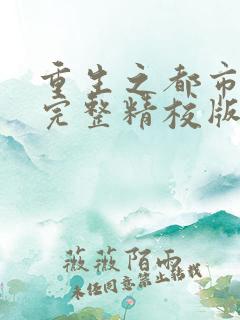 重生之都市
完整精校版
薇薇陌雨
未经同意禁止转载